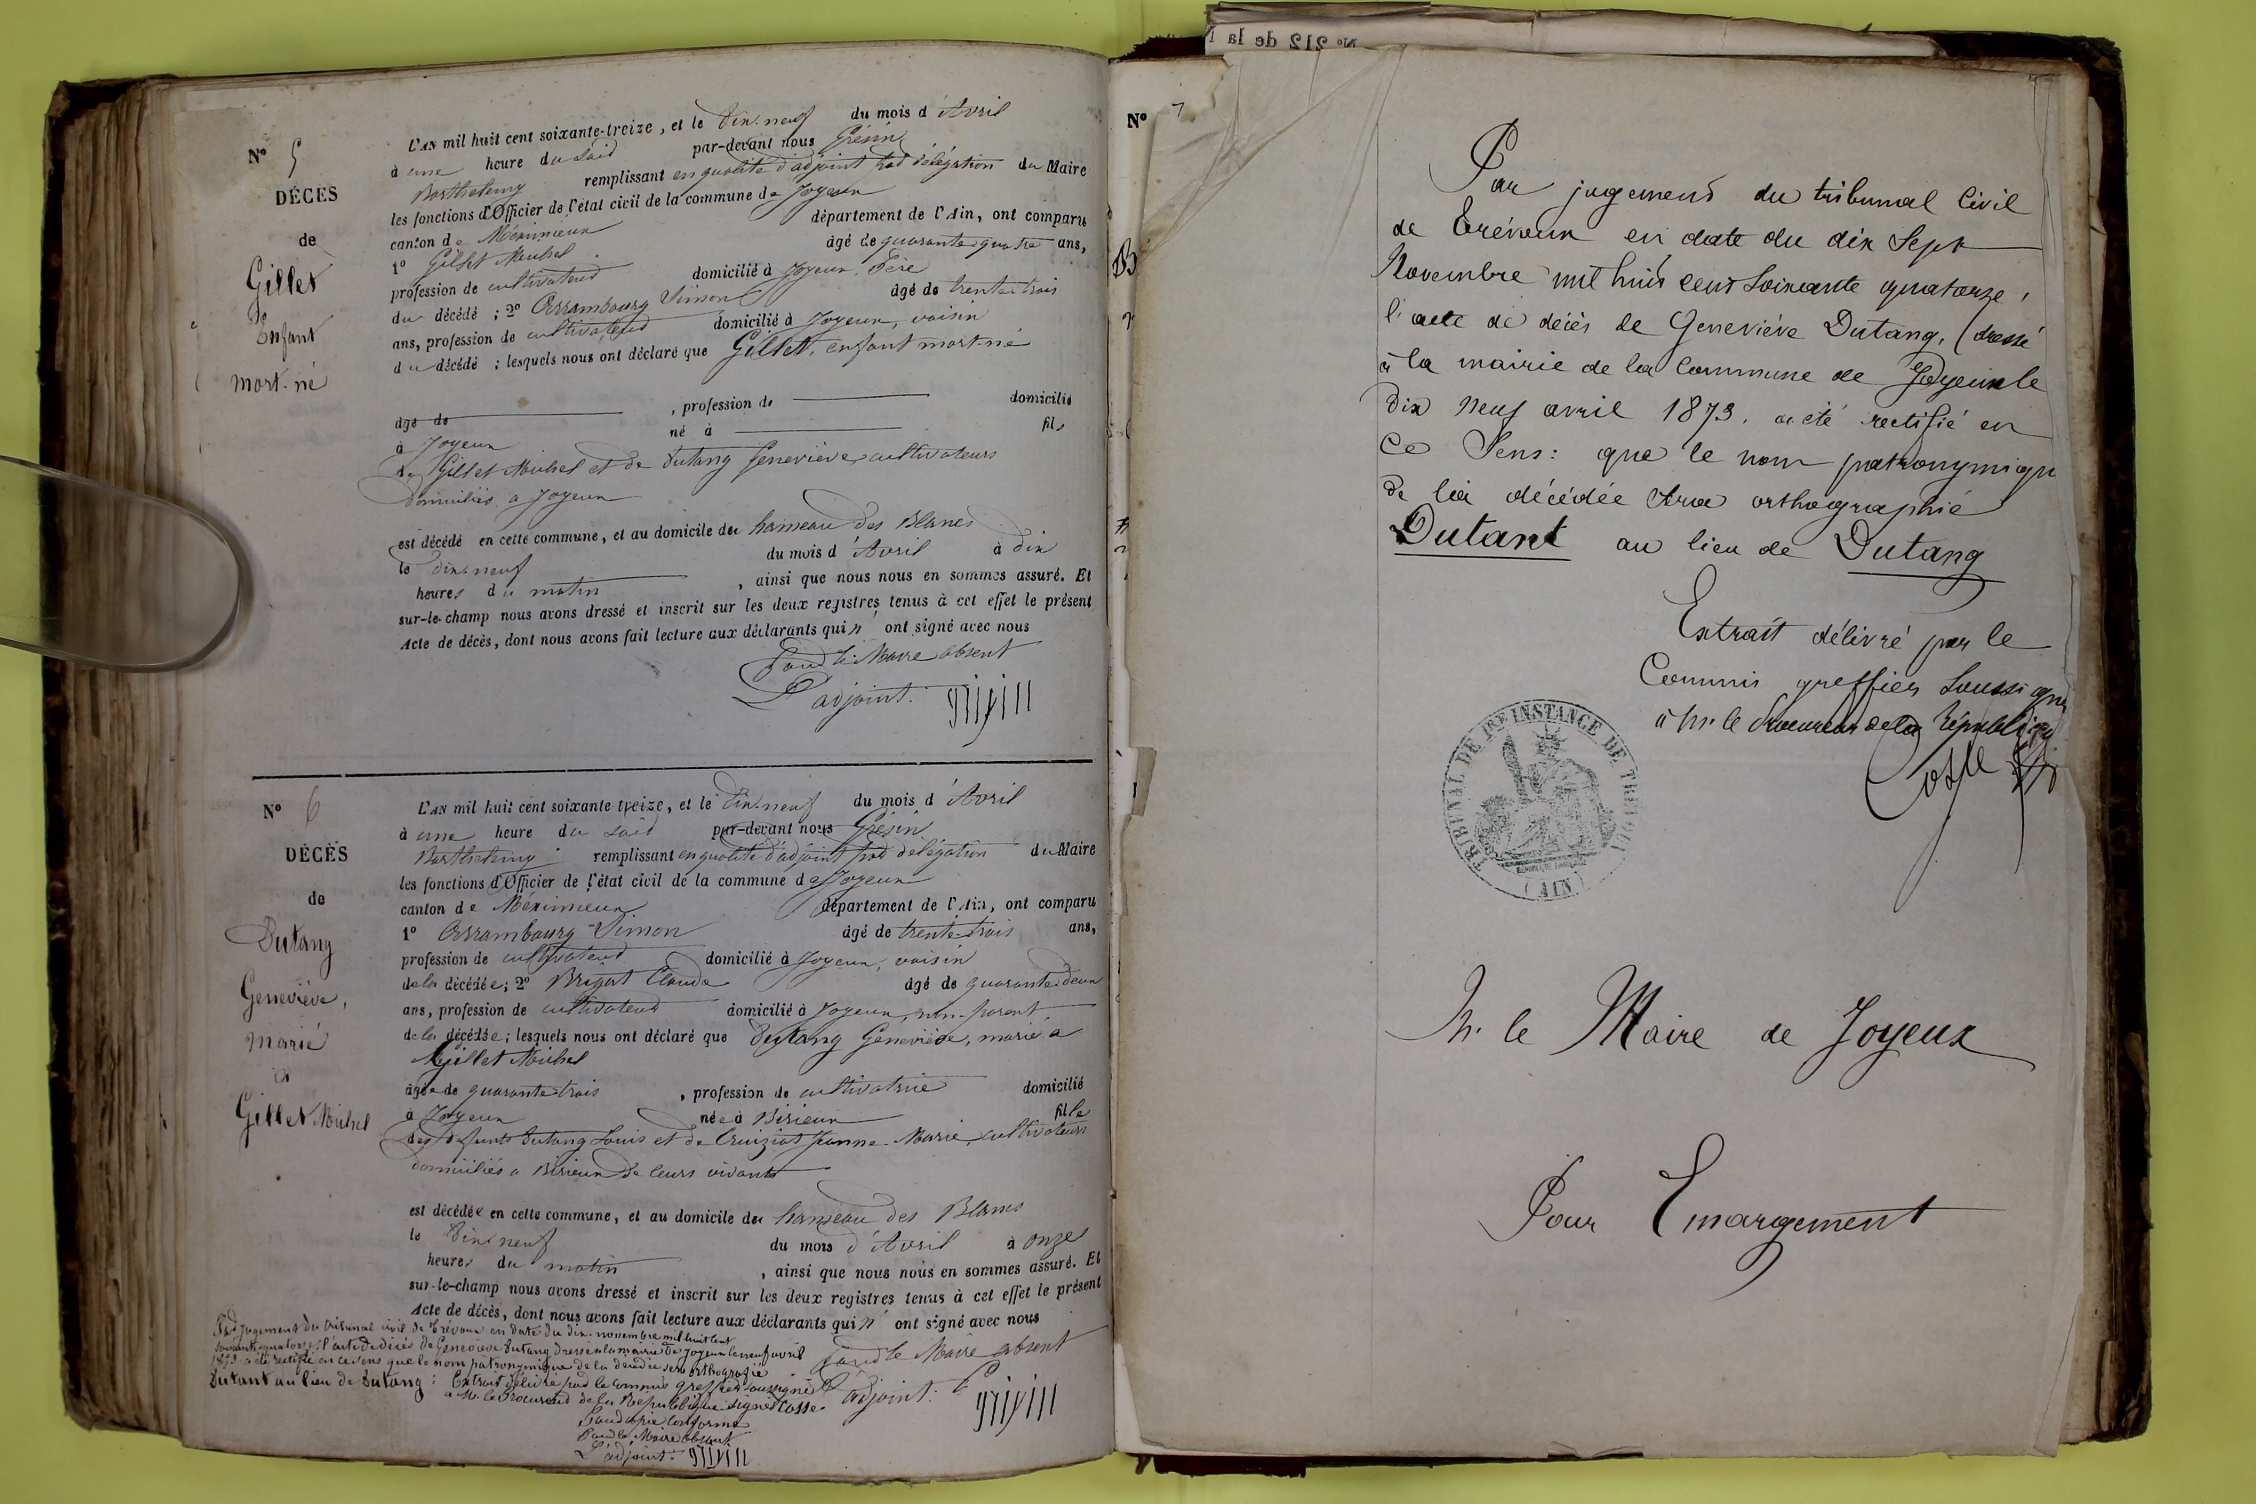 Nº 5
DÉCÈS
de
Gillet
Enfant
mort-né
L'AN mil huit cent soixante-treize, et le dix-neuf du mois d'Avril
à une heure du soir par-devant nous Grésin
Barthelemy remplissant en qualité d'adjoint par délégation du Maire
les fonctions d'Officier de l'état civil de la commune de Joyeux
canton de Méximieux département de l'Ain, ont comparu
1º Gillet Michel âgé de quarante-quatre ans,
profession de cultivateur domicilié à Joyeux, Père
du décédé ; 2º Arrambourg Simon âgé de trente-trois
ans, profession de cultivateur domicilié à Joyeux, voisin
du décédé ; lesquels nous ont déclaré que Gillet, enfant mort-né
âgé de , profession de domicilié
à Joyeux né à fils
de Gillet Michel et de Dutang Geneviève cultivateurs
domiciliés a Joyeux
est décédé en cette commune, et au domicile du hameau des Blancs
le dix-neuf du mois d'Avril à dix
heures du matin , ainsi que nous nous en sommes assuré. Et
sur-le-champ nous avons dressé et inscrit sur les deux registres tenus à cet effet le présent
Acte de décès, dont nous avons fait lecture aux déclarants qui n'ont signé avec nous
Pour le Maire absent
L'adjoint:
Nº 6
DÉCÈS
de
Dutang
Geneviève,
marié
a
Gillet Michel
L'AN mil huit cent soixante-treize, et le dix-neuf du mois d'Avril
à une heure du soir par-devant nous Grésin
Barthelemy remplissant en qualité d'adjoint par délégation du Maire
les fonctions d'Officier de l'état civil de la commune de Joyeux
canton de Méximieux département de l'Ain, ont comparu
1º Arrambourg Simon âgé de trente-trois ans,
profession de cultivateur domicilié à Joyeux, voisin
de la décédée ; 2º Brigat Claude âgé de quarante-deux
ans, profession de cultivateur domicilié à Joyeux, non-parent
de la décédée ; lesquels nous ont déclaré que Dutang Geneviève, marié a
Gillet Michel
âgée de quarante-trois , profession de cultivatrice domicilié
à Joyeux née à Birieux fille
des défunts Dutang Louis et de Cruiziat Jeanne-Marie, cultivateurs
domiciliés a Birieux de leurs vivants
est décédée en cette commune, et au domicile du hameau des Blancs
le dix-neuf du mois d'Avril à onze
heures du matin , ainsi que nous nous en sommes assuré. Et
sur-le-champ nous avons dressé et inscrit sur les deux registres tenus à cet effet le présent
Acte de décès, dont nous avons fait lecture aux déclarants qui n'ont signé avec nous
Pour le Maire absent
L'adjoint:
Par jugement du tribunal civil de Trévoux en date du dix novembre mil huit cent
soixante quatorze l'acte de décès de Geneviève Dutang dressé a la mairie de Joyeux le neuf avril
1873 a été rectifié en ce sens que le nom patronymique de la décédée sera orthografié
Dutant au lieu de Dutang: Extrait délivré par le commis greffier soussigné
a Mr. le Procureur de la République signé Cosse
Pour copie conforme
Pour le Maire absent
L'adjoint:
Nº 7
Nº 212 de la
Par jugement du tribunal Civil
de Trévoux en date du dix Sept
Novembre mil huit cent Soixante quatorze,
l'acte de décès de Geneviève Dutang, (dressé
à la mairie de la Commune de Joyeux le
dix neuf avril 1873, a été rectifié en
Ce Sens: que le nom patronymiqu
de la décédée Sera orthographié
Dutant au lieu de Dutang
Extrait délivré par le
Commis greffier Soussigné
à Mr. le Procureur de la République
TRIBUNAL DE 1RE INSTANCE DE TRÉVOUX
(AIN)
M. le Maire de Joyeux
Pour Emargement